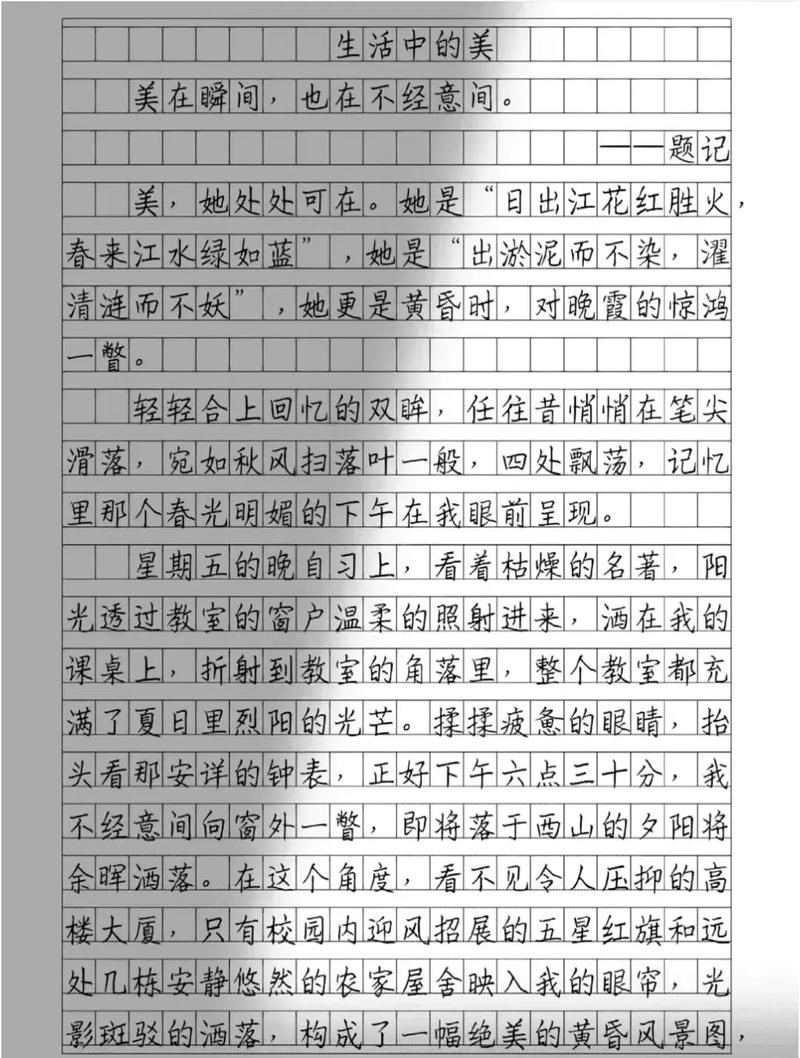 生活中的美
美在瞬间，也在不经意间。
——题记
美，她处处可在。她是“日出江花红胜火，
春来江水绿如蓝”，她是“出淤泥而不染，濯
清涟而不妖”，她更是黄昏时，对晚霞的惊鸿
一瞥。
轻轻合上回忆的双眸，任往昔悄悄在笔尖
滑落，宛如秋风扫落叶一般，四处飘荡，记忆
里那个春光明媚的下午在我眼前呈现。
星期五的晚自习上，看着枯燥的名著，阳
光透过教室的窗户温柔的照射进来，洒在我的
课桌上，折射到教室的角落里，整个教室都充
满了夏日里烈阳的光芒。揉揉疲惫的眼睛，抬
头看那安详的钟表，正好下午六点三十分，我
不经意间向窗外一瞥，即将落于西山的夕阳将
余晖洒落。在这个角度，看不见令人压抑的高
楼大厦，只有校园内迎风招展的五星红旗和远
处几栋安静悠然的农家屋舍映入我的眼帘，光
影斑驳的洒落，构成了一幅绝美的黄昏风景图，